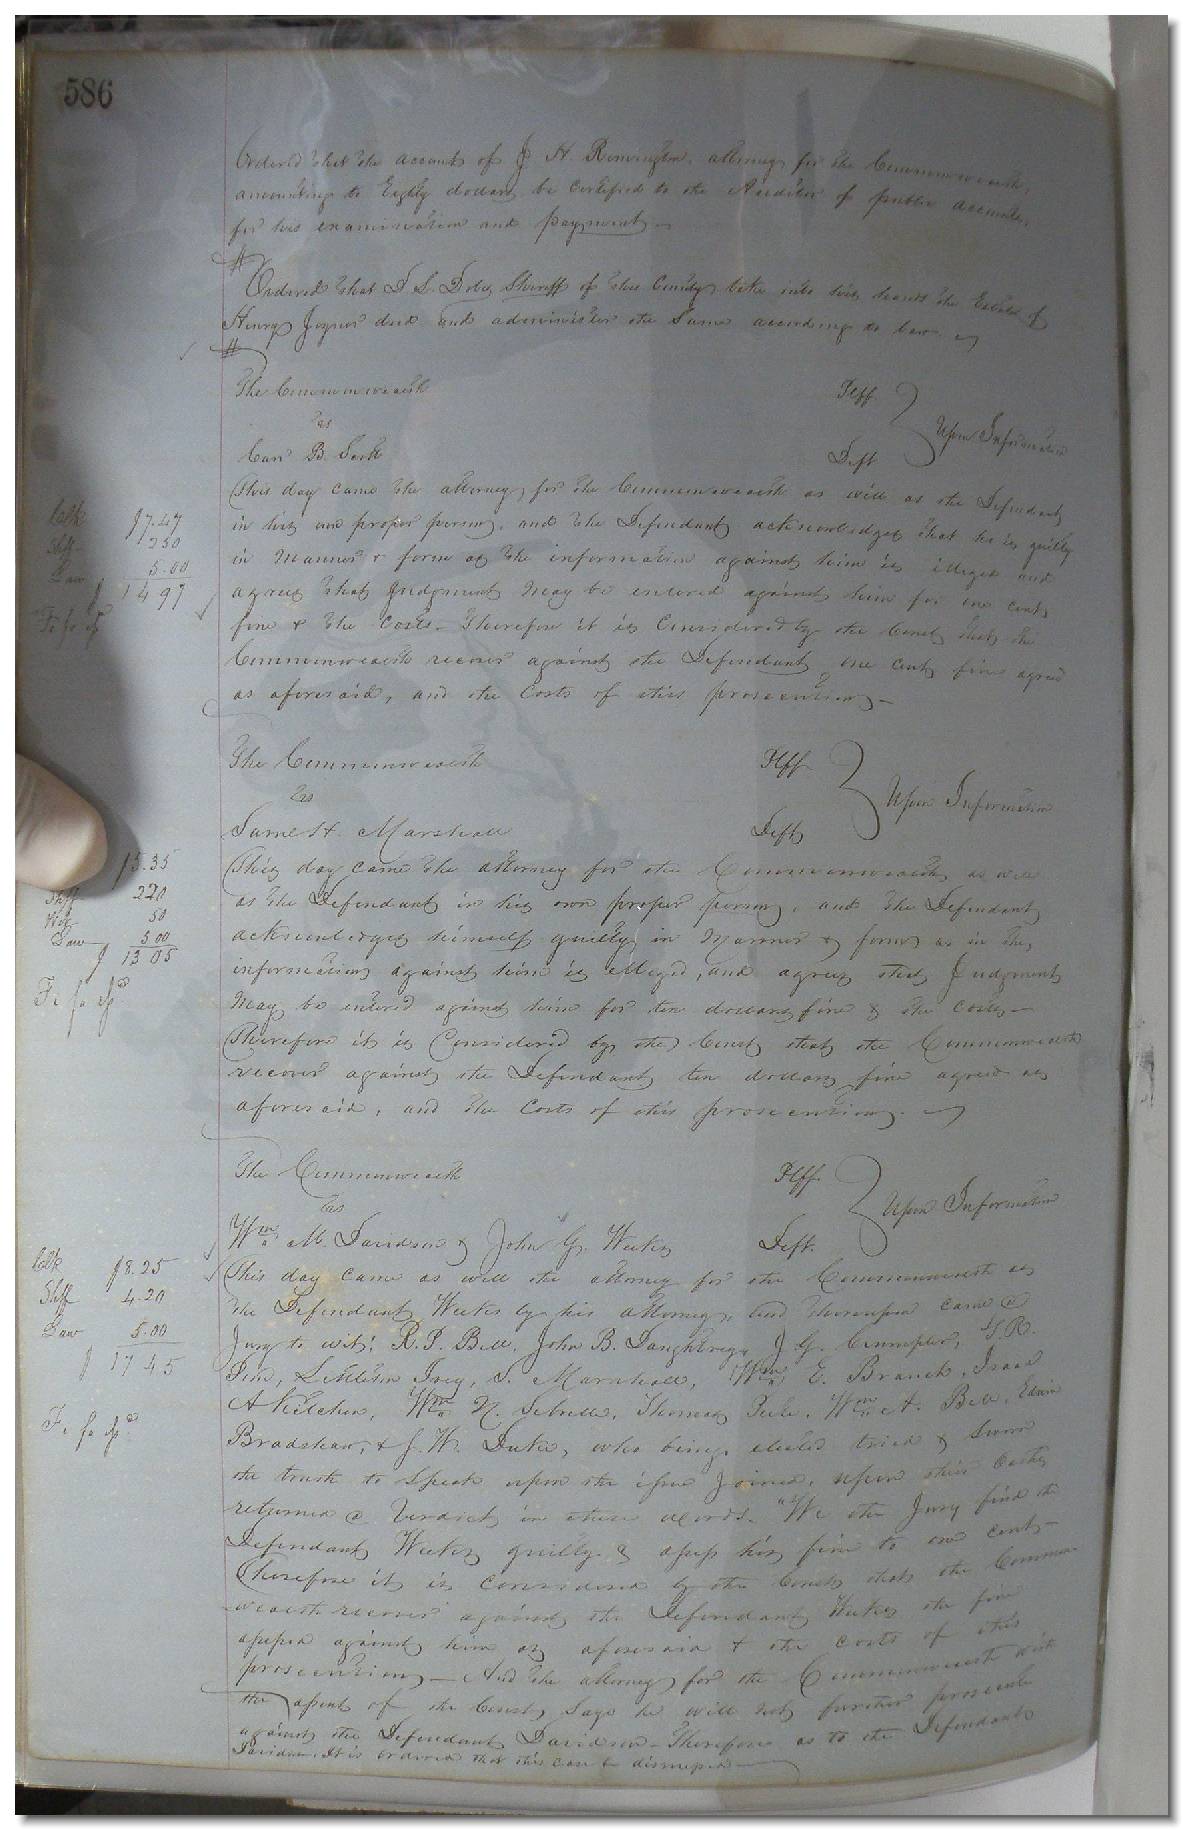 586
Ordered that the account of J. H. Remington, attorney for the Commonwealth,
amounting to Eighty dollars be certified to the Auditor of public accounts,
for his examination and payment—
Ordered that Sheriff of this County take into his hands the Estate of
Henry Joyner decd and administer the same according to law
The Commonwealth Plff.
vs Upon Information
B. Deft
This day came the attorney for the Commonwealth as well as the Defendant
in his own proper person, and the Defendant acknowledges that he is guilty
in manner & form as the information against him is alleged and
agrees that Judgment may be entered against him for one cent
fine & the costs. Therefore it is considered by the Court that the
Commonwealth recover against the Defendant one cent fine agreed
as aforesaid, and the costs of this prosecution—
Clk $7.47
Shff 250
Law 5.00
$ 14 97
Fi fa
The Commonwealth Plff.
vs Upon Information
Marshall Deft
This day came the attorney for the Commonwealth as well
as the Defendant in his own proper person, and the Defendant
acknowledges himself guilty in manner & form as in the
information against him is alleged, and agrees that Judgment
may be entered against him for ten dollars fine & the costs—
Therefore it is considered by the Court that the Commonwealth
recover against the Defendant ten dollars fine agreed as
aforesaid, and the costs of this prosecution.
5.35
Shff 220
Wit 50
Law 5 00
$ 13 05
Fi fa
The Commonwealth Plff.
vs Upon Information
Wm M. Davidson & John G. Weeks Deft.
This day came as well the attorney for the Commonwealth as
the Defendant Weeks by his attorney, and thereupon came a
Jury to wit: R. P. Bell, John B. Daughtrey, J. G. Crumpler,
Marshall, Wm E. Branch, Isaac
Wm N. Sebrell, Thomas Wm A. Bell, Edwin
Bradshaw, & J. W. Duke, who being elected tried & sworn
the truth to speak upon the issue joined, upon their oaths
returned a verdict in these words. "We the Jury find the
Defendant Weeks guilty & assess his fine to one cent—
Therefore it is considered by the Court that the Common
wealth recover against the Defendant Weeks the fine
assessed against him as aforesaid & the costs of this
prosecution— And the attorney for the Commonwealth with
the assent of the Court, says he will not further prosecute
against the Defendant Davidson— Therefore as to the Defendant
Davidson, It is ordered that this case be dismissed—
Clk $8.25
Shff 4.20
Law 5.00
$ 17 45
Fi fa